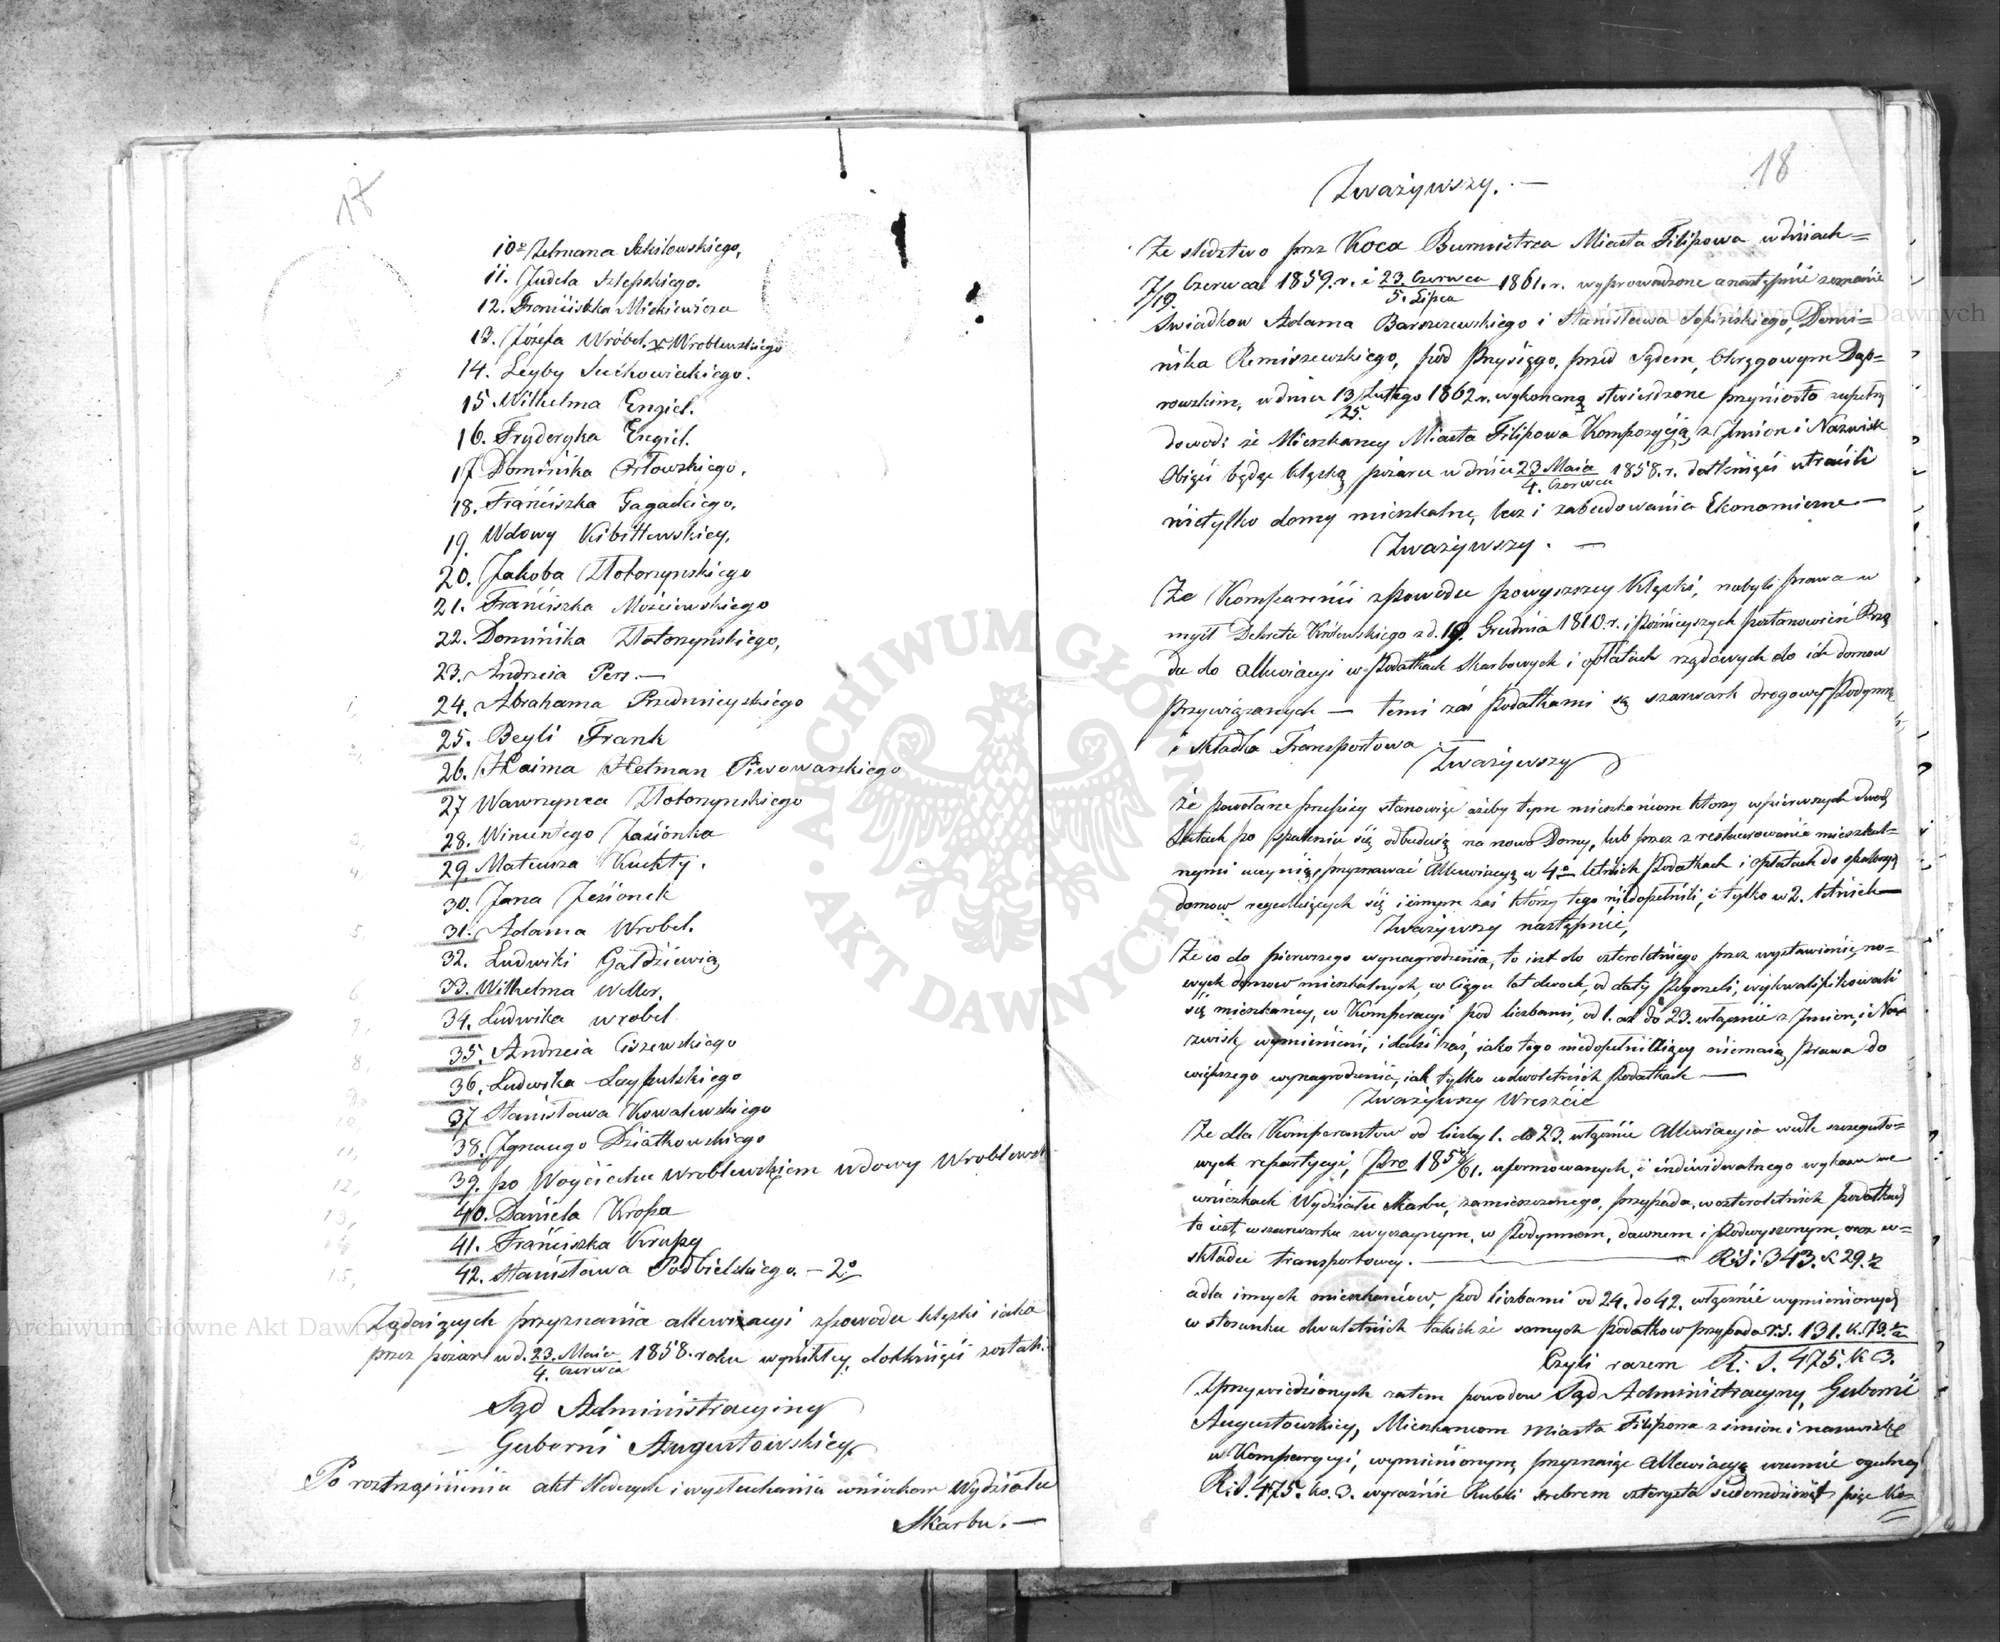 17
10o Zelmana Szkilowskiego,
11. Judela Szlepskiego.
12. Franciszka Mickiewicza
13. Józefa Wróbel v Wroblewskiego
14. Leyby Suchowieckiego.
15. Wilhelma Engiel.
16. Fryderyka Engiel.
17 Dominika Orłowskiego,
18. Franciszka Gagackiego,
19. Wdowy Kibittewskiey,
20. Jakoba Złotorzynskiego
21. Franciszka Mościewskiego
22. Dominika Złotorzyńskiego,
23. Andrzeia Pers. —
24. Abrahama Przedmieyskiego
25. Beyli Frank
26. Haima Hetman Piwowarskiego
27 Wawrzynca Złotorzynskiego
28. Wincentego Jasionka
29 Mateusza Kuchty.
30. Jana Jesionek
31. Adama Wrobel.
32. Ludwiki Gałdziewią
33. Wilhelma Weller.
34. Ludwika Wrobel
35. Andrzeia Ciszewskiego
36. Ludwika Łazpulskiego
37 Stanisława Kowalewskiego
38. Ignacego Dziatkowskiego
39. po Woyciechu Wroblewskiem wdowy Wroblewsk
40. Daniela Kropa
41. Franciszka Krupy
42. Stanisława Podbielskiego. — 2o
Żądaiących przyznania allewiacyi z powodu klęski iaka
przez pożar w d. 23. Maia / 4. Czerwca 1858. roku wynikłey, dotknięci zostali.
Sąd Administracyiny
Gubernii Augustowskiey
Po roztrząśnieniu akt śledczych i wysłuchaniu wniosków Wydziału
Skarbu. —
18
Zważywszy. —
Że sledztwo prze Koca Burmistrza Miasta Filipowa w dniach =
7/19. Czerwca 1859. r. i 23 Czerwca / 5. Lipca 1861. r. wyprowadzone a następnie zeznanie
Swiadkow Adama Barszczewskiego i Stanisława Sopinskiego, Domi=
nika Remiszewskiego, pod Przysięgą, przed Sądem, Okręgowym Dąb=
rowskim, w dniu 13/25. Lutego 1862 r. wykonaną stwierdzone przyniosło zupełny
dowod: że Mieszkancy Miasta Filipowa Komparycyą z Imion i Nazwisk
Obięci będąc klęską pożaru w dniu 23 Maia / 4. Czerwca 1858. r. dotknięci utracili
nietylko domy mieszkalne, lecz i zabudowania Ekonomiczne —
Zważywszy. —
Że Komparenci z powodu powyższey Klęski, nabyli prawa w
myśl Dekretu Królewskiego z d. 19. Grudnia 1810. r. i późnieyszych postanowień Rzą
du do allewiacyi w Podatkach Skarbowych i opłatach rządowych do ich domow
przywiązanych — temi zaś Podatkami są szarwark drogowy Podymne
i składka Transportowa
Zważywszy
że powołane przepisy stanowią ażeby tym mieszkańcom ktorzy w pierwszych dwoch
Latach po spaleniu się odbudują na nowo Domy, lub przez z restaurowanie mieszkal=
nymi uczynią, przyznawać Allewiacyą w 4o letnich Podatkach i opłatach do spalonych
domow regulujących się i innym zaś którzy tego niedopełnili, i tylko w 2. letnich —
Zważywszy następnie,
Że co do pierwszego wynagrodzenia, to iest do czteroletniego przez wystawienie no=
wych domow mieszkalnych, w ciągu lat dwoch, od daty Pogorzeli, wykwalifikowali
się mieszkańcy, w Komparycyi pod liczbami, od 1. aż do 23. włącznie z Imion, i Na=
zwisk, wymienieni, i dalsi zaś, iako tego niedopełniliący niemaią prawa do
większego wynagrodzenia, iak tylko w dwoletnich Podatkach —
Zważywszy Wreszcie
Że dla Komparantow od liczby 1. do 23. włącznie Allewiacyia wedle szczegoło=
wych repartycyi, Pro uformowanych, i indiwidualnego wykazu we
wnioskach Wydziału Skarbu, zamieszczonego, przypada, w czteroletnich podatkach
to iest, w szarwarku zwyczaynym, w Podymnem, dawnem i podwyszonym, oraz w=
składce transportowey. — R.S. 343. k 29.
a dla innych mieszkańców, pod liczbami od 24. do 42. włącznie wymienionych
w stosunku dwuletnich takich że samych podatkow przypada r.s. 131. k. 73.
Czyli razem R. S. 475. k 3.
Z przywiedzionych zatem powodow Sąd Administracyiny, Gubernii
Augustowskiey, Mieszkancom miasta Filipowa z imion i nazwisk
w Komparycyi, wymienionym przyznaiąc Allewiacyą w sumie ogulney
R.S. 475. ko. 3. wyraźnie Rubli srebrem czterysta siedemdziesiąt pięc Ko=